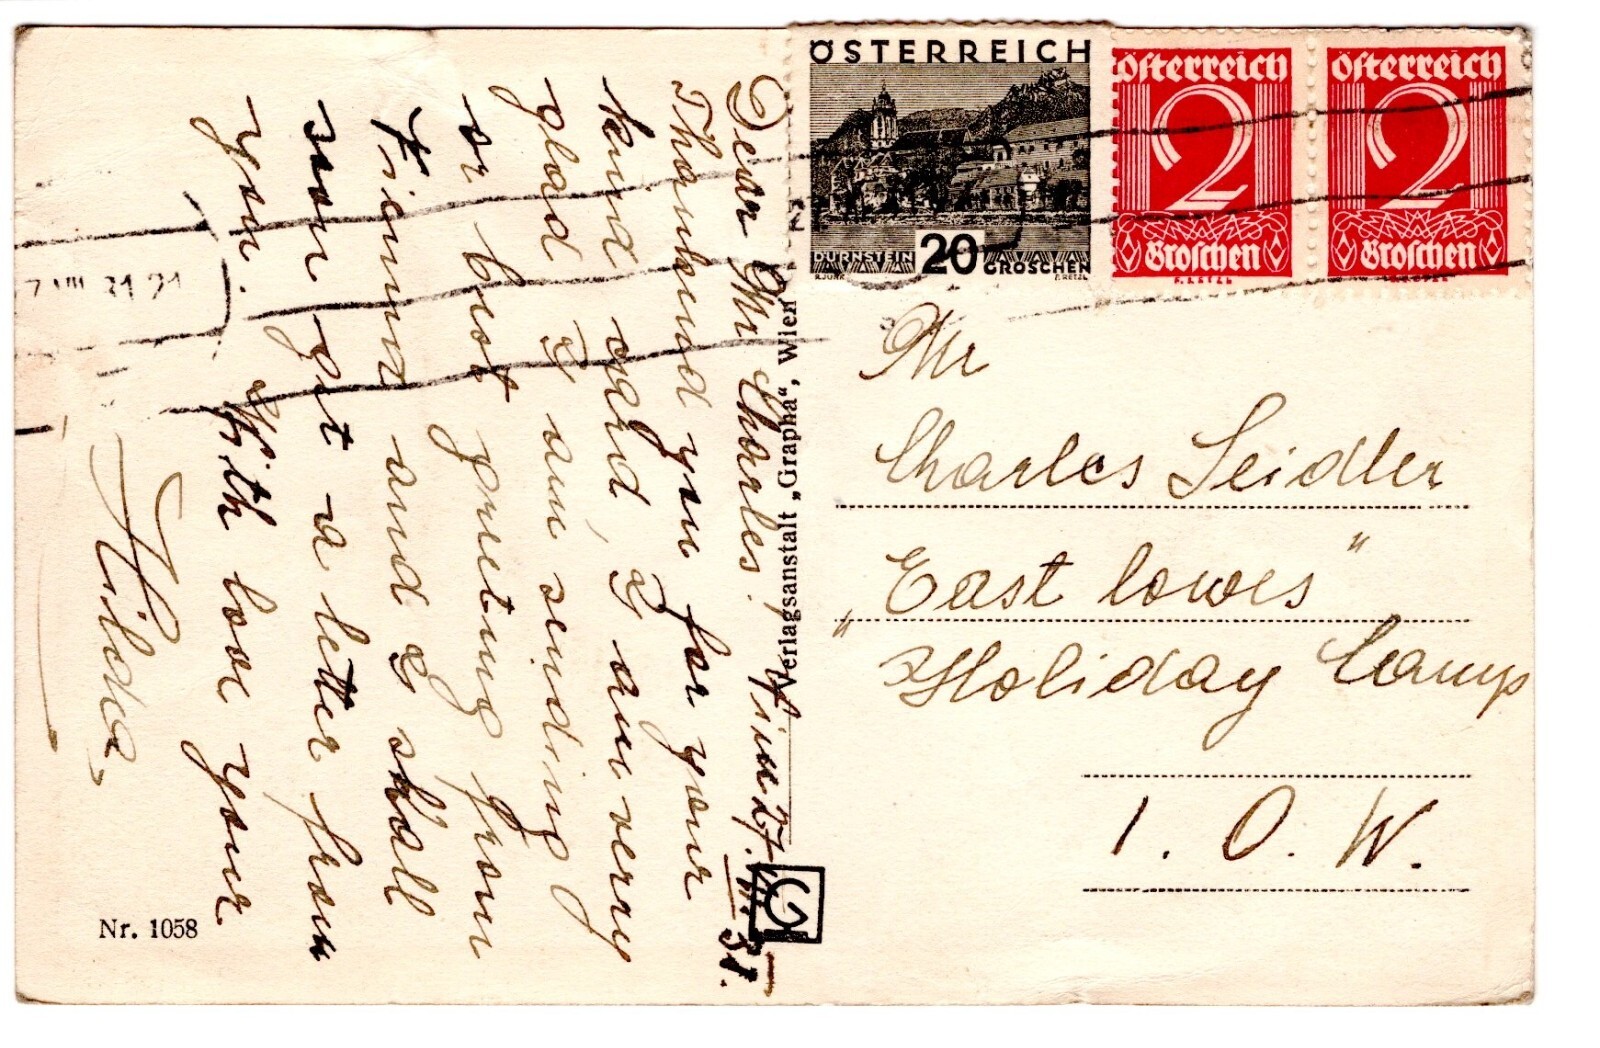 ÖSTERREICH
DÜRNSTEIN 20 GROSCHEN
Österreich
2
Groschen
Österreich
2
Groschen
Dear Mr Charles!
27.VII.31.
Thousand you for your
kind card, I am very
glad I am sending
or best greeting from
Vienna and I shall
soon get a letter from
you. With love your
Hilda
Verlagsanstalt „Grapha“, Wien
Nr. 1058
Mr
Charles Seidler
"East lowes"
Holiday Camp
I. O. W.